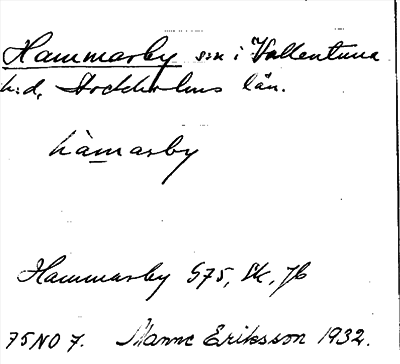 Hammarby sn i Vallentuna
h:d, Stockholms län.
hàmarby
Hammarby S75, Sk, Jb
75 NO 7. Manne Eriksson 1932.